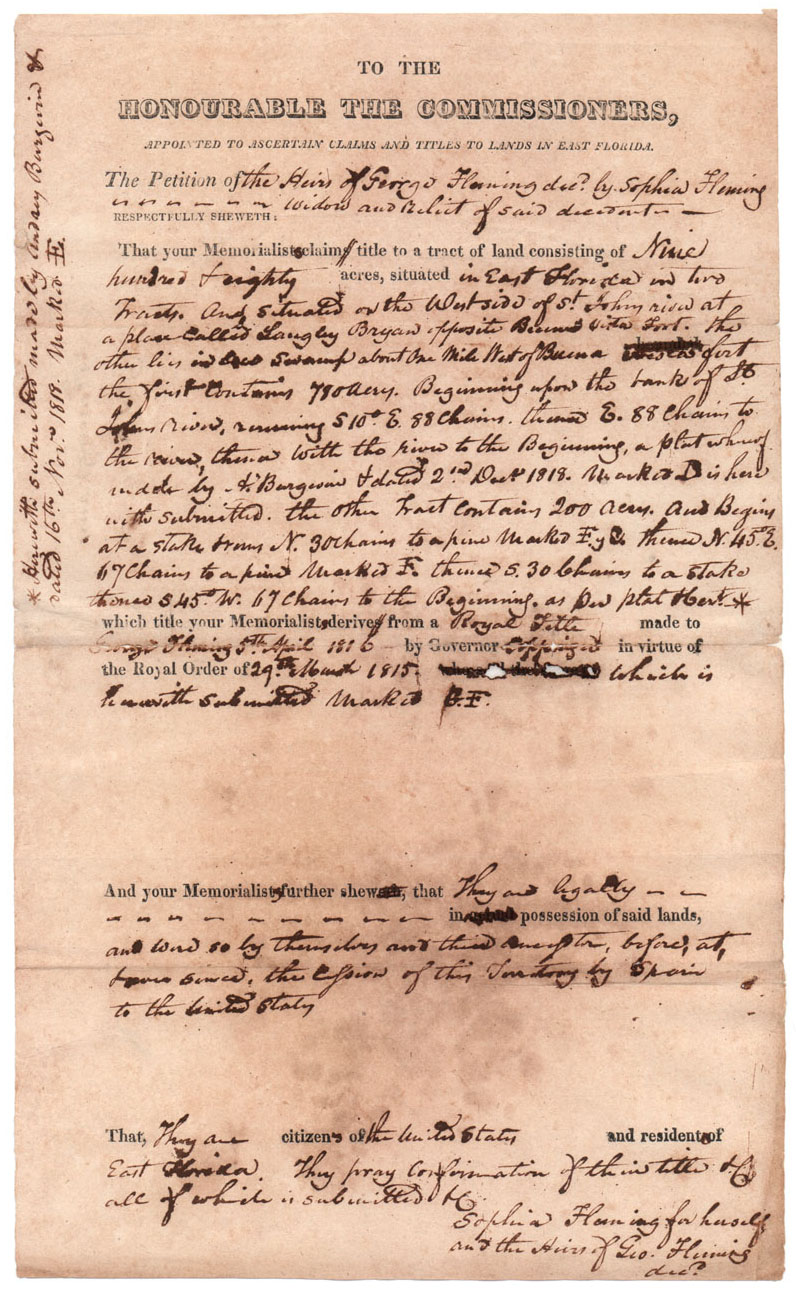 TO THE
HONOURABLE THE COMMISSIONERS,
APPOINTED TO ASCERTAIN CLAIMS AND TITLES TO LANDS IN EAST FLORIDA.
The Petition of the Heirs of George Fleming decd. by Sophia Fleming
widow and Relict of said decedent —
RESPECTFULLY SHEWETH:
That your Memorialists claim title to a tract of land consisting of Nine
hundred & eighty acres, situated in East Florida in two
Tracts. And situated on the West side of St. Johns river at
a place called Langley Bryan opposite Buena Vista Fort. the
other lies in Swamp about One Mile West of Buena fort
the first contains 780 acres. Beginning upon the bank of St
Johns river, running S 10° E. 88 Chains. thence E. 88 Chains to
the river, thence with the river to the Beginning, a plat whereof
made by A. Burgevin & dated 2nd Decr 1818. Marked D is here
with submitted. the other Tract contains 200 acres. and Begins
at a stake N. 30 chains to a pine Marked F. thence N. 45° E.
67 Chains to a pine Marked F. thence S. 30 Chains to a stake
thence S 45° W. 67 Chains to the Beginning. as per plat *
which title your Memorialists derive from a Royal Title made to
George Fleming 5th April 1816 — by Governor Coppinger in virtue of
the Royal Order of 29th March 1815. which is
herewith submitted Marked F.
And your Memorialists further shew, that They are legally — —
in possession of said lands,
and were so by themselves and their ancestor, before, at,
& ever since, the Cession of this Territory by Spain
to the United States
That, They are citizens of the United States and residents of
East Florida. They pray confirmation of their title &c
all of which is submitted &c.
Sophia Fleming for herself
and the Heirs of Geo. Fleming
decd.
* Herewith submitted made by Andrew Burgevin &
dated 16th Novr. 1818. Marked E.